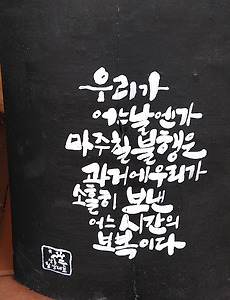 우리가
어느날엔가
마주칠 불행은
과거에 우리가
소홀히 보낸
어느 시간의
보복이다